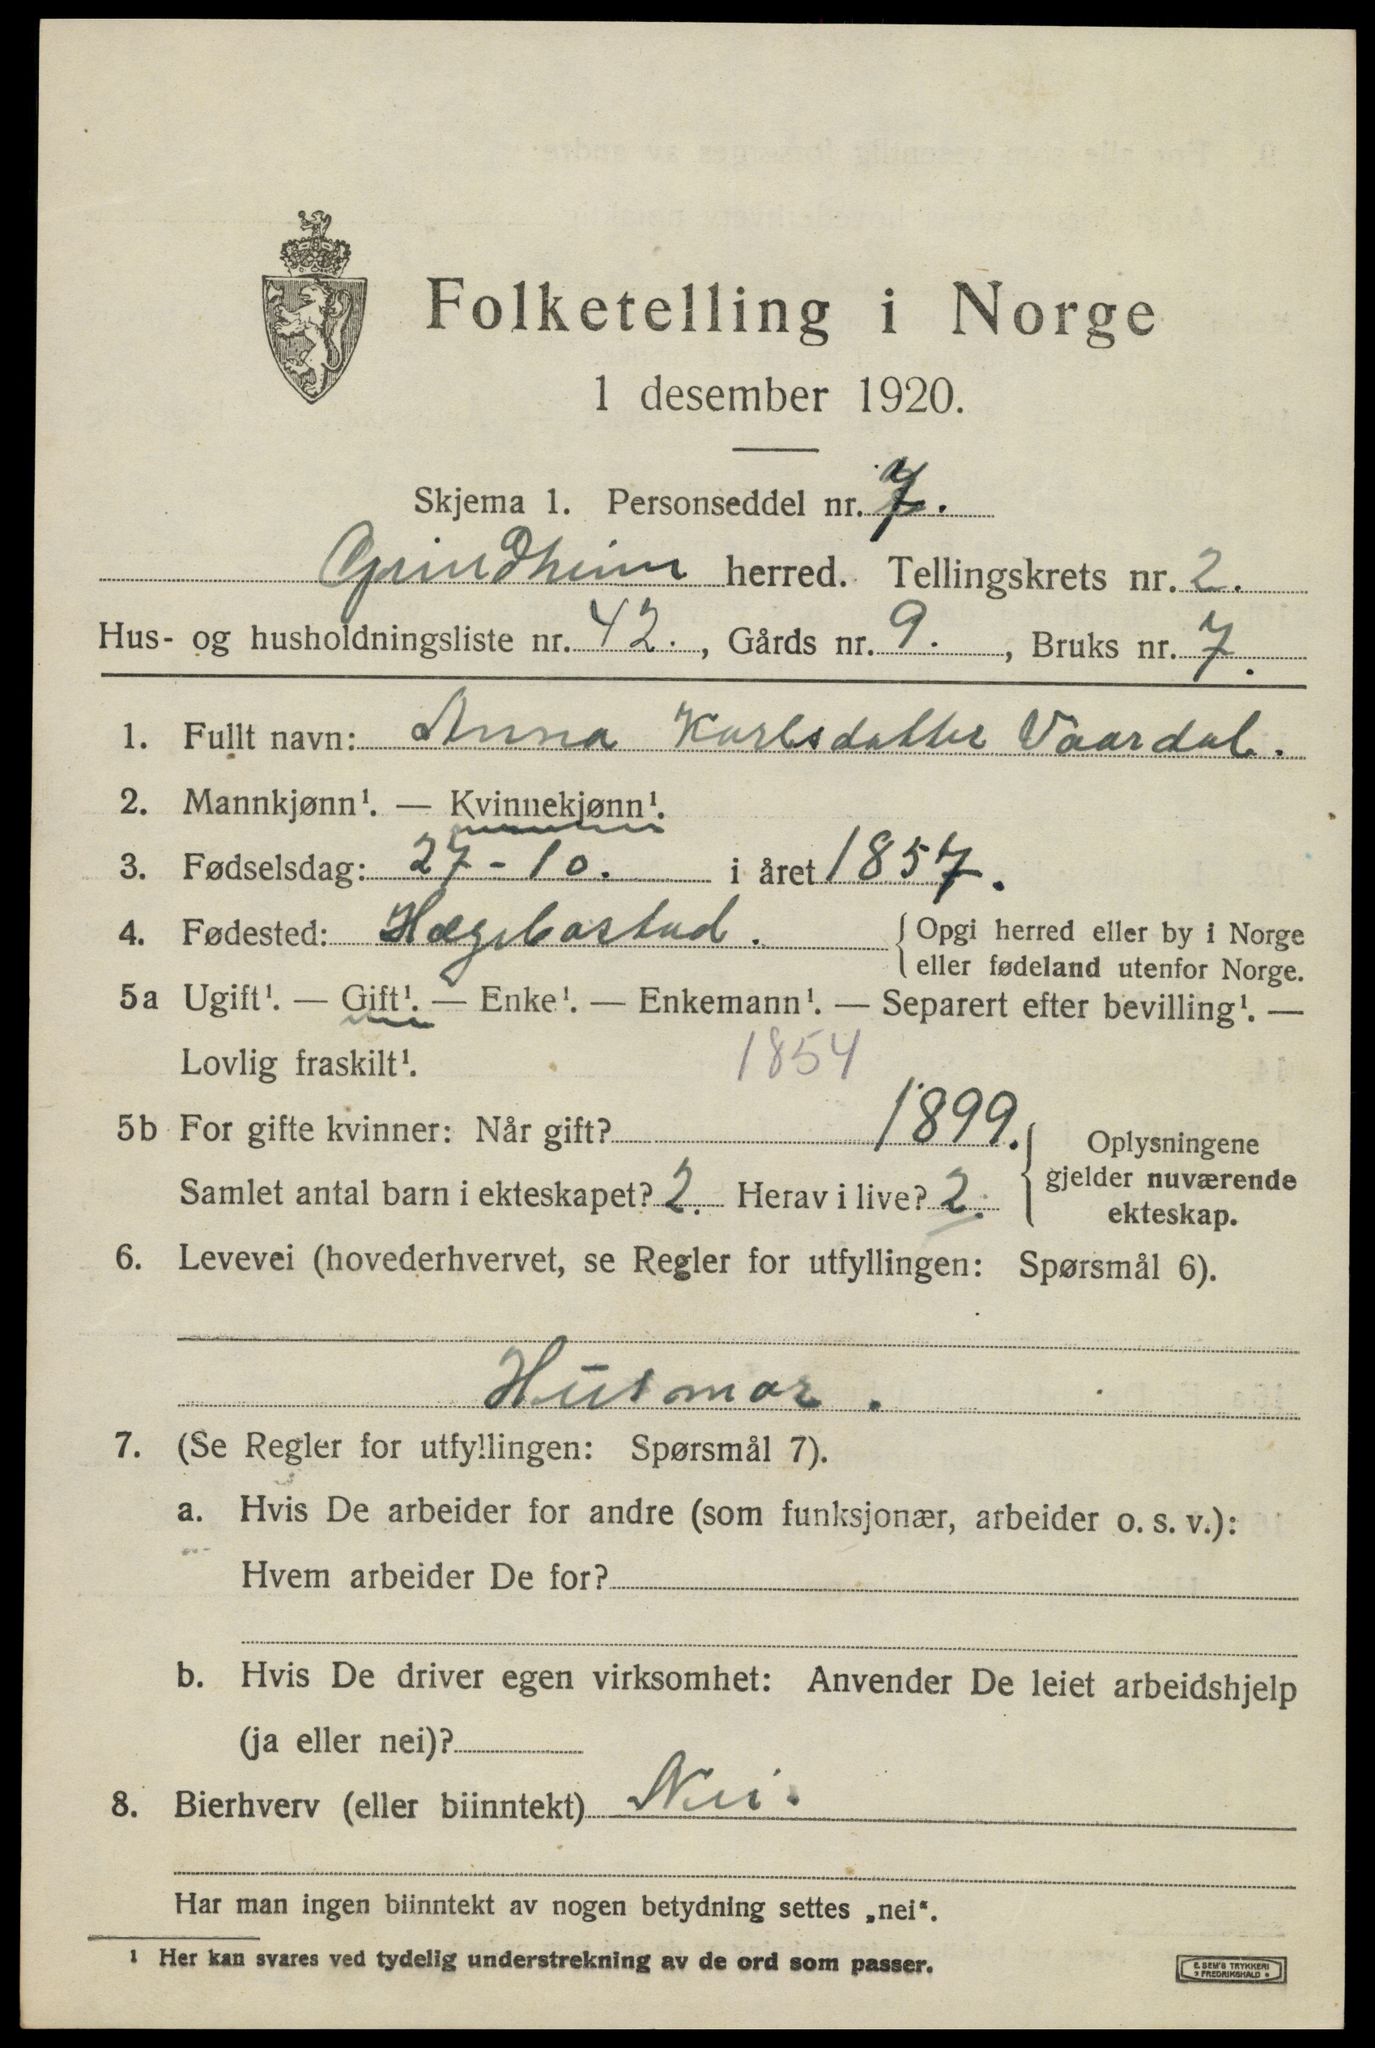 Folketelling i Norge
1 desember 1920.
Skjema 1. Personseddel nr. 7.
Grindheim herred. Tellingskrets nr. 2.
Hus- og husholdningsliste nr. 42., Gårds nr. 9., Bruks nr. 7.
1. Fullt navn: Anna Karlsdatter Vaardal.
2. Mannkjønn¹. — Kvinnekjønn¹.
3. Fødselsdag: 27-10. i året 1857.
4. Fødested: Hægebostad. { Opgi herred eller by i Norge
eller fødeland utenfor Norge.
5a Ugift¹. — Gift¹. — Enke¹. — Enkemann¹. — Separert efter bevilling¹. —
Lovlig fraskilt¹. 1854
5b For gifte kvinner: Når gift? 1899. { Oplysningene
gjelder nuværende
Samlet antal barn i ekteskapet? 2. Herav i live? 2. ekteskap.
6. Levevei (hovederhvervet, se Regler for utfyllingen: Spørsmål 6).
Husmor.
7. (Se Regler for utfyllingen: Spørsmål 7).
a. Hvis De arbeider for andre (som funksjonær, arbeider o. s. v.):
Hvem arbeider De for?
b. Hvis De driver egen virksomhet: Anvender De leiet arbeidshjelp
(ja eller nei)?
8. Bierhverv (eller biinntekt) Nei.
Har man ingen biinntekt av nogen betydning settes „nei“.
¹ Her kan svares ved tydelig understrekning av de ord som passer.
E. SEM'S TRYKKERI
FREDRIKSHALD